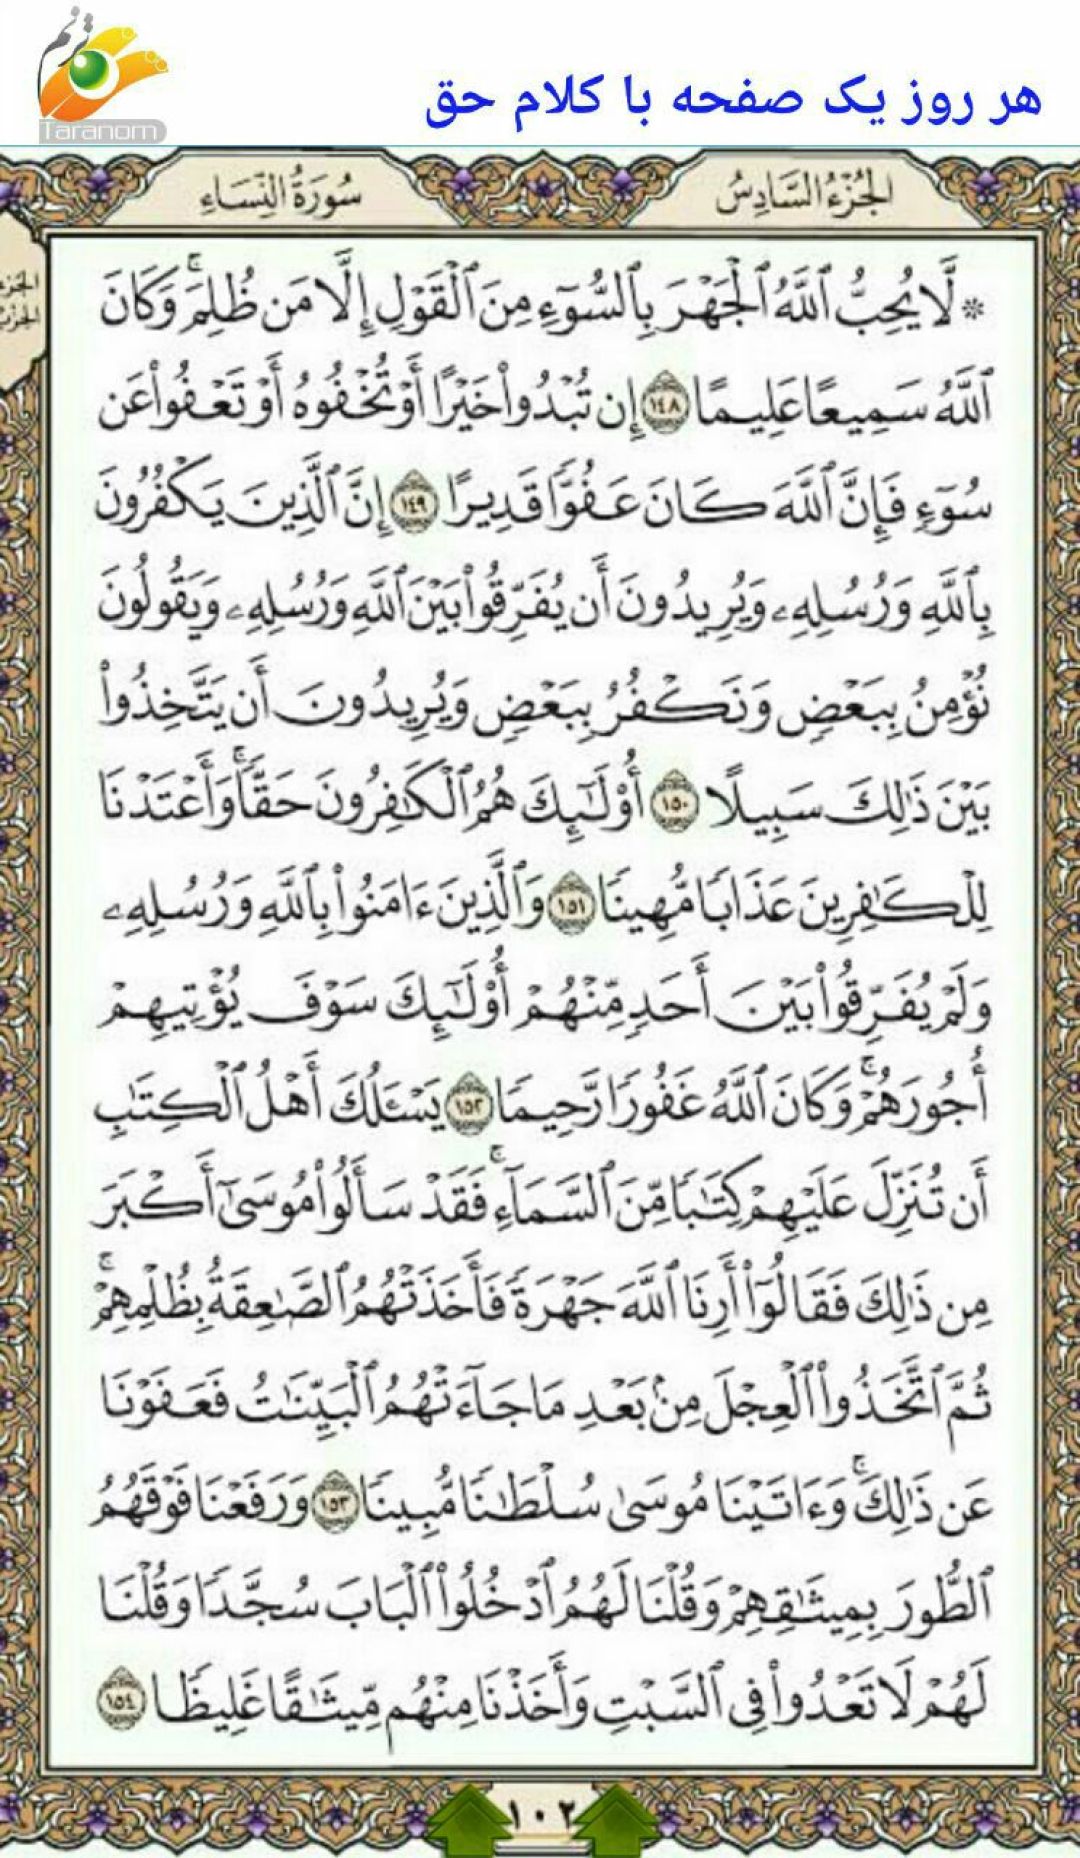 ترنم
Taranom
هر روز یک صفحه با کلام حق
الجُزْءُ السَّادِسُ
سُورَةُ النِّسَاءِ
۞ لَّا يُحِبُّ ٱللَّهُ ٱلْجَهْرَ بِٱلسُّوٓءِ مِنَ ٱلْقَوْلِ إِلَّا مَن ظُلِمَۚ وَكَانَ
ٱللَّهُ سَمِيعًا عَلِيمًا ١٤٨ إِن تُبْدُوا۟ خَيْرًا أَوْ تُخْفُوهُ أَوْ تَعْفُوا۟ عَن
سُوٓءٍ فَإِنَّ ٱللَّهَ كَانَ عَفُوًّا قَدِيرًا ١٤٩ إِنَّ ٱلَّذِينَ يَكْفُرُونَ
بِٱللَّهِ وَرُسُلِهِۦ وَيُرِيدُونَ أَن يُفَرِّقُوا۟ بَيْنَ ٱللَّهِ وَرُسُلِهِۦ وَيَقُولُونَ
نُؤْمِنُ بِبَعْضٍ وَنَكْفُرُ بِبَعْضٍ وَيُرِيدُونَ أَن يَتَّخِذُوا۟
بَيْنَ ذَٰلِكَ سَبِيلًا ١٥٠ أُو۟لَٰٓئِكَ هُمُ ٱلْكَٰفِرُونَ حَقًّاۚ وَأَعْتَدْنَا
لِلْكَٰفِرِينَ عَذَابًا مُّهِينًا ١٥١ وَٱلَّذِينَ ءَامَنُوا۟ بِٱللَّهِ وَرُسُلِهِۦ
وَلَمْ يُفَرِّقُوا۟ بَيْنَ أَحَدٍ مِّنْهُمْ أُو۟لَٰٓئِكَ سَوْفَ يُؤْتِيهِمْ
أُجُورَهُمْۚ وَكَانَ ٱللَّهُ غَفُورًا رَّحِيمًا ١٥٢ يَسْـَٔلُكَ أَهْلُ ٱلْكِتَٰبِ
أَن تُنَزِّلَ عَلَيْهِمْ كِتَٰبًا مِّنَ ٱلسَّمَآءِۚ فَقَدْ سَأَلُوا۟ مُوسَىٰٓ أَكْبَرَ
مِن ذَٰلِكَ فَقَالُوٓا۟ أَرِنَا ٱللَّهَ جَهْرَةً فَأَخَذَتْهُمُ ٱلصَّٰعِقَةُ بِظُلْمِهِمْۚ
ثُمَّ ٱتَّخَذُوا۟ ٱلْعِجْلَ مِنۢ بَعْدِ مَا جَآءَتْهُمُ ٱلْبَيِّنَٰتُ فَعَفَوْنَا
عَن ذَٰلِكَۚ وَءَاتَيْنَا مُوسَىٰ سُلْطَٰنًا مُّبِينًا ١٥٣ وَرَفَعْنَا فَوْقَهُمُ
ٱلطُّورَ بِمِيثَٰقِهِمْ وَقُلْنَا لَهُمُ ٱدْخُلُوا۟ ٱلْبَابَ سُجَّدًا وَقُلْنَا
لَهُمْ لَا تَعْدُوا۟ فِى ٱلسَّبْتِ وَأَخَذْنَا مِنْهُم مِّيثَٰقًا غَلِيظًا ١٥٤
١٠٢